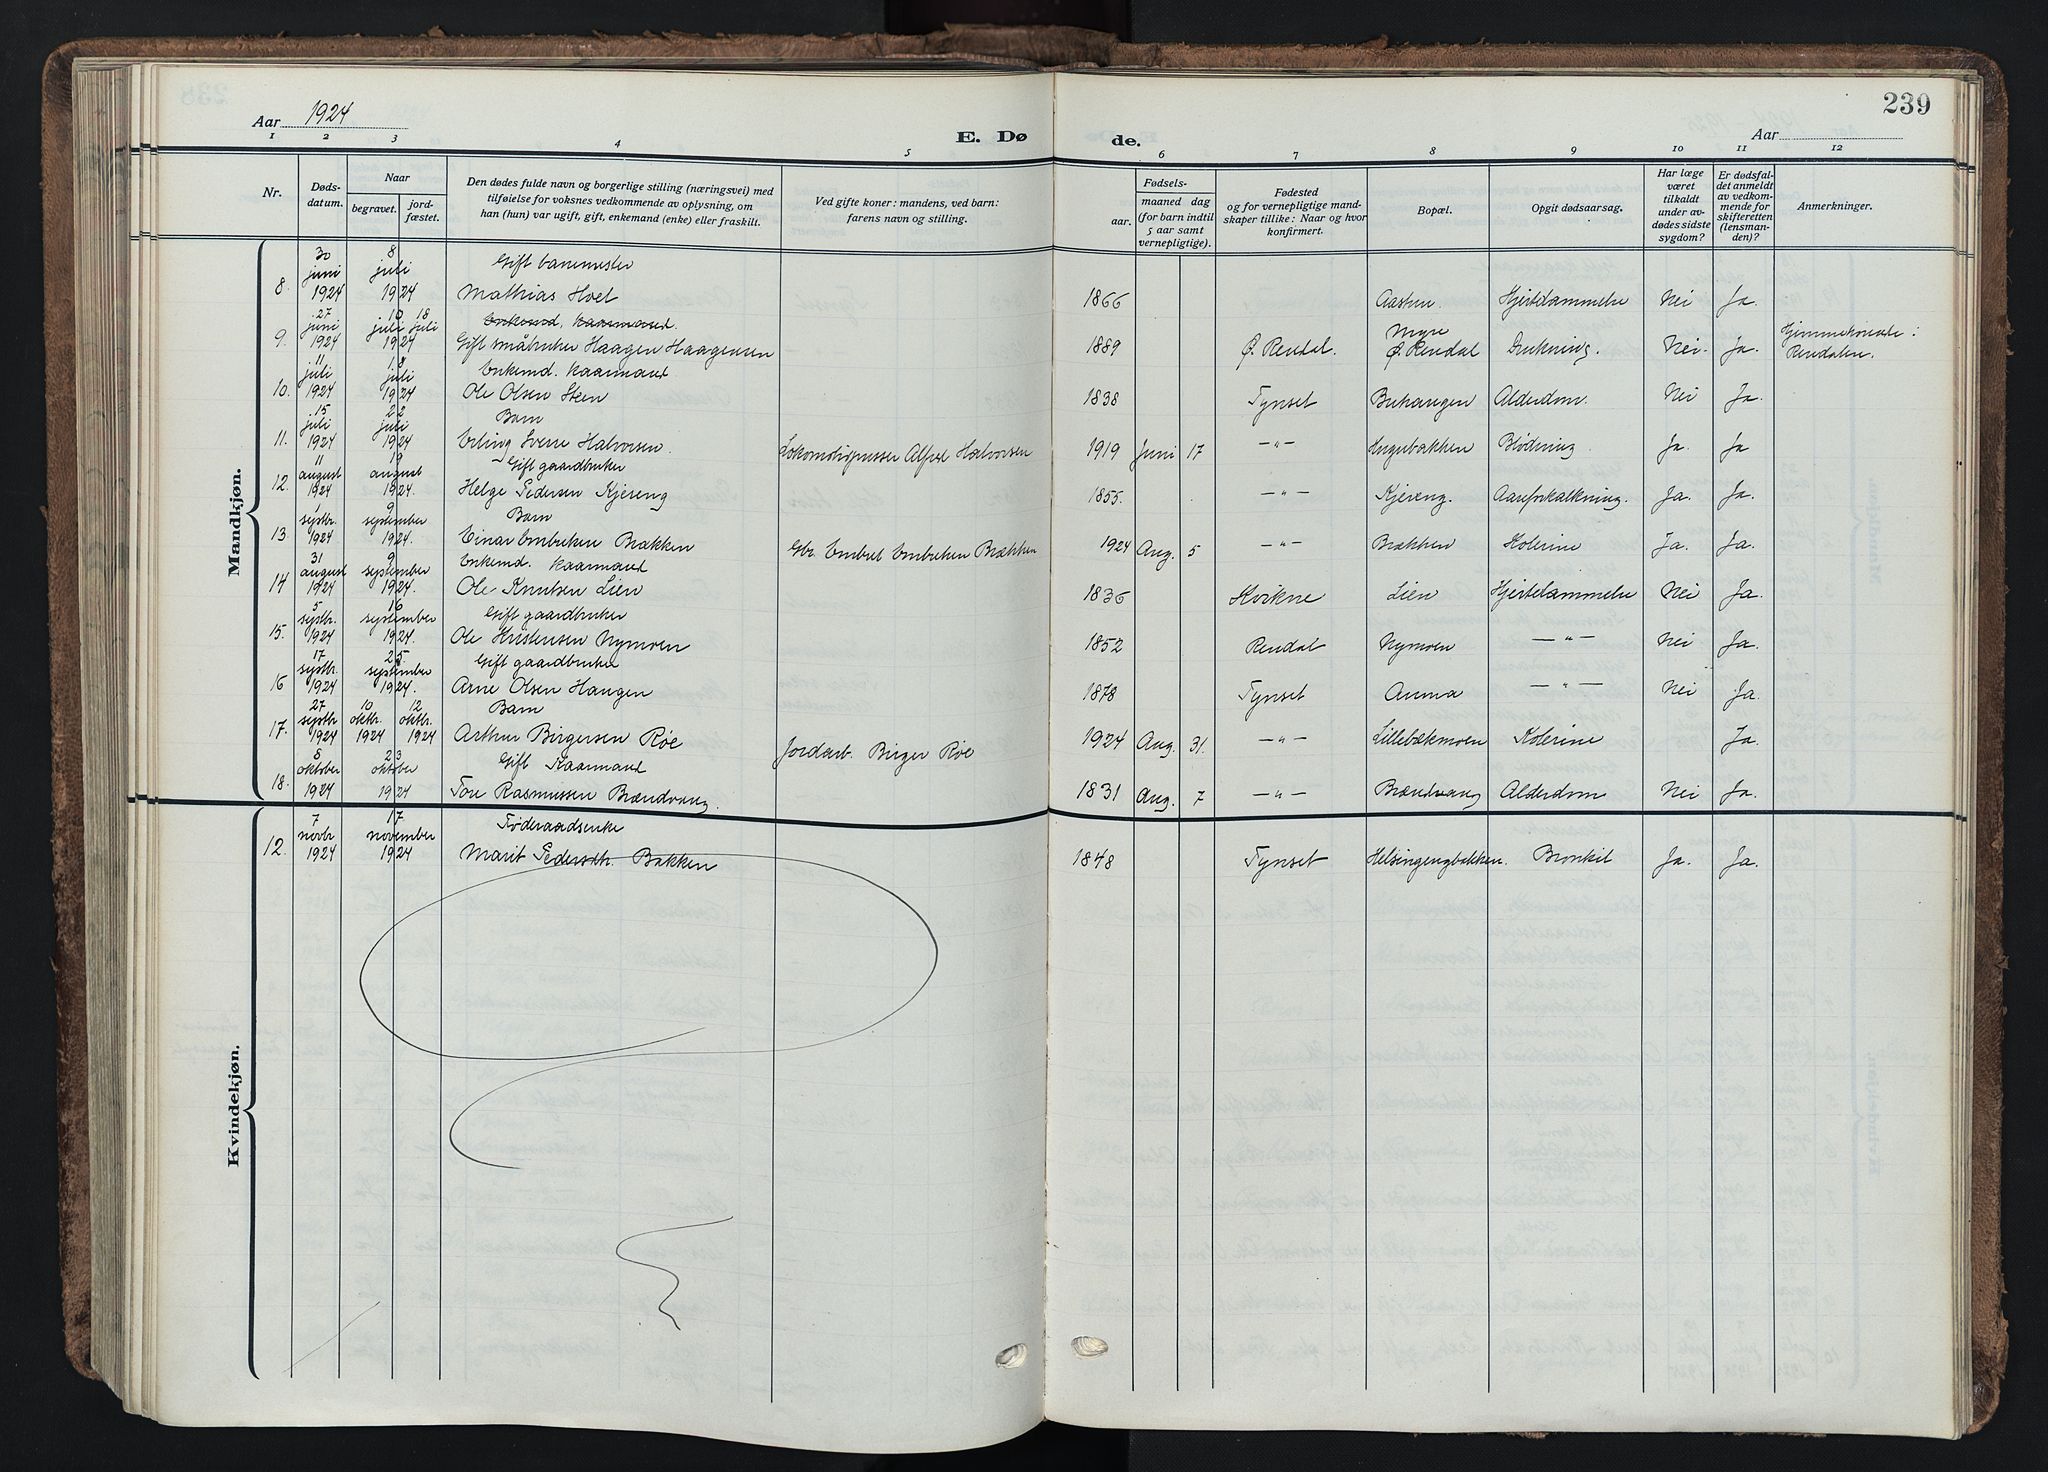 239
Aar 1924
E. Dø
de.
Aar
1 2 3 4 5 6 7 8 9 10 11 12
Nr.
Døds-
datum.
Naar
begravet.
jord-
fæstet.
Den dødes fulde navn og borgerlige stilling (næringsvei) med
tilføielse for voksnes vedkommende av oplysning, om
han (hun) var ugift, gift, enkemand (enke) eller fraskilt.
Ved gifte koner: mandens, ved barn:
farens navn og stilling.
Fødsels-
aar.
maaned
dag
(for barn indtil
5 aar samt
vernepligtige).
Fødested
og for vernepligtige mand-
skaper tillike: Naar og hvor
konfirmert.
Bopæl.
Opgit dødsaarsag.
Har læge
været
tilkaldt
under av-
dødes sidste
sygdom?
Er dødsfal-
det anmeldt
av vedkom-
mende for
skifteretten
(lensman-
den)?
Anmerkninger.
Mandkjøn.
30 8
juni juli Gift banemester
8. 1924 1924 Mathias Hoel 1866 Aasheim Hjertelammelse Nei Ja.
27 10 18
juni juli juli Enkemd. kaarmand. Myre Hjemmehørende:
9. 1924 1924 Gift småbruker Haagen Haagensen — 1889 Ø. Rendal. Ø. Rendal Drukning. Nei. Ja. Rendalen.
11 18
juli juli Enkemd. kaarmand
10. 1924 1924 Ole Olsen Steen 1838 Tynset Alderdom. Nei Ja.
15 22
juli juli Barn
11. 1924 1924 Erling Sverre Halvorsen. Lokomotivpusser Alfred Halvorsen 1919 Juni 17 —"— Blødning. Ja. Ja
11 19
august august Gift gaardbruker
12. 1924 1924. Helge Pedersen Kjereng 1855. —"— Kjereng. Aareforkalkning. Ja. Ja.
1 9
septbr. september Barn
13. 1924 1924. Einar Embretsen Bækken Gbr. Embret Embretsen Bækken 1924 Aug. 5 —"— Bækken Kolerine Ja. Ja.
31 9
august september Enkemd. kaarmand
14 1924 1924. Ole Knutsen Lien 1836 Kvikne Lien Hjertelammelse Nei Ja.
5 16
septbr. september Gift gaardbruker
15. 1924 1924. Ole Kristensen Nymoen 1852 Rendal Nymoen —"— Nei Ja.
17 25
septbr. september Gift gaardbruker
16 1924 1924. Arne Olsen Haugen 1878 Tynset Auma —"— Nei Ja.
27 10 12
septbr oktbr. oktbr. Barn
17. 1924 1924 1924 Arthur Birgersen Røe Jordarb. Birger Røe 1924 Aug. 31. —"— Lillebækmoen Kolerine Ja.
8 23
oktober oktober Gift Kaarmand
18. 1924 1924 Tore Rasmussen Brændvang. 1831 Aug. 7 —"— Brændvang Alderdom Nei Ja.
Kvindekjøn.
7 17
novbr november Føderaadsenke
12. 1924 1924 Marit Pedersdtr. Bakken 1848 Tynset Helsingengbakken. Bronkit Ja. Ja.